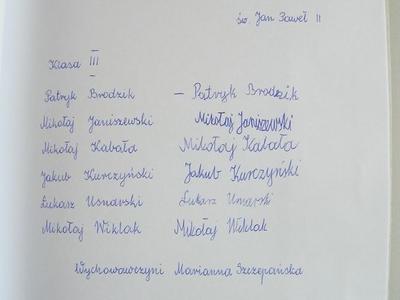 św. Jan Paweł II
Klasa III
Patryk Brodzik – Patryk Brodzik
Mikołaj Janiszewski Mikołaj Janiszewski
Mikołaj Kabała Mikołaj Kabała
Jakub Kurczyński Jakub Kurczyński
Łukasz Usnarski Łukasz Usnarski
Mikołaj Wiklak Mikołaj Wiklak
Wychowawczyni Marianna Szczepańska